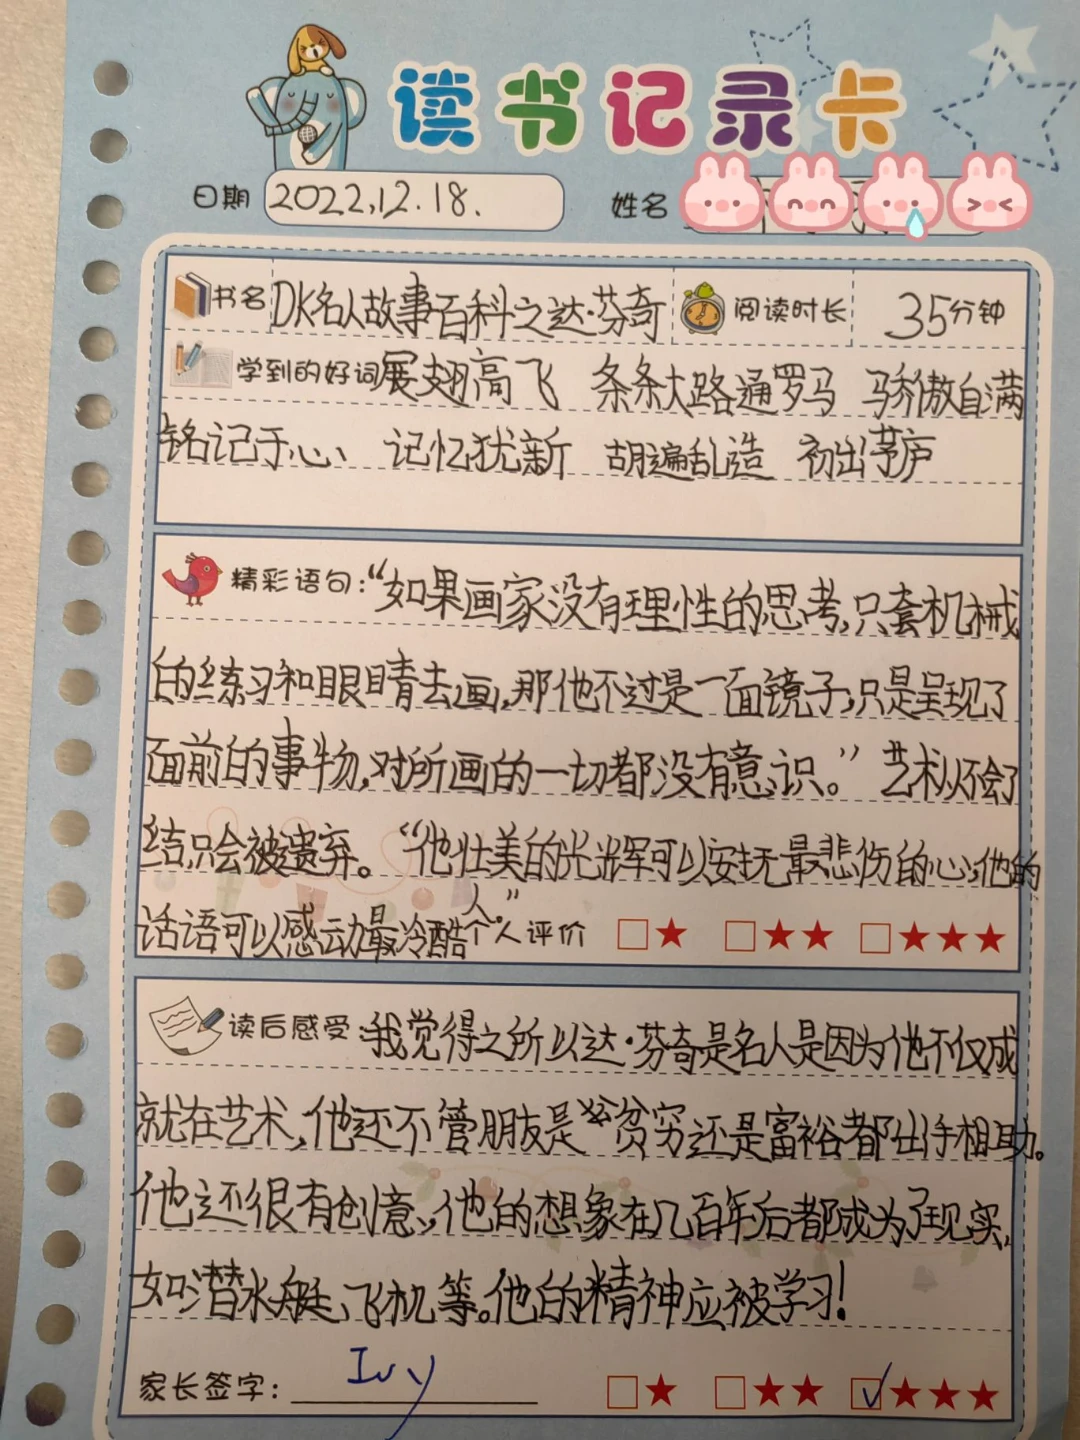 读书记录卡
日期 2022.12.18. 姓名
书名 DK名人故事百科之达·芬奇 阅读时长 35分钟
学到的好词 展翅高飞 条条大路通罗马 骄傲自满
铭记于心、 记忆犹新 胡遍乱造 初出茅庐
精彩语句:“如果画家没有理性的思考,只套机械
的练习和眼睛去画,那他不过是一面镜子,只是呈现了
面前的事物,对所画的一切都没有意识。” 艺术从不会了
结,只会被遗弃。“他壮美的光辉可以安抚最悲伤的心,他的
话语可以感动最冷酷人。” 个人评价 □★ □★★ □★★★
读后感受:我觉得之所以达·芬奇是名人是因为他不仅成
就在艺术,他还不管朋友是贫穷还是富裕都出手相助。
他还很有创意,他的想象在几百年后都成为了现实,
如潜水艇、飞机等。他的精神应被学习!
家长签字: Ivy □★ □★★ ☑★★★